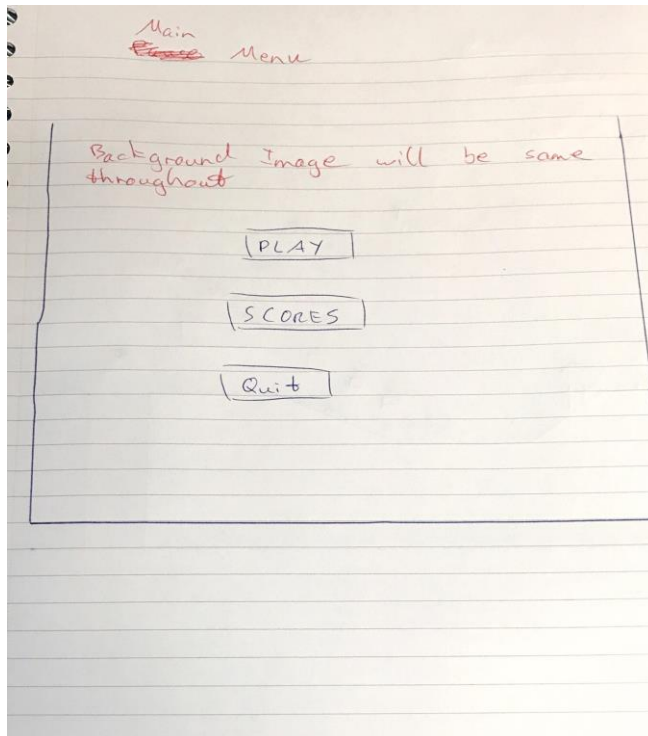 Main
Menu
Background Image will be same
throughout
PLAY
SCORES
Quit